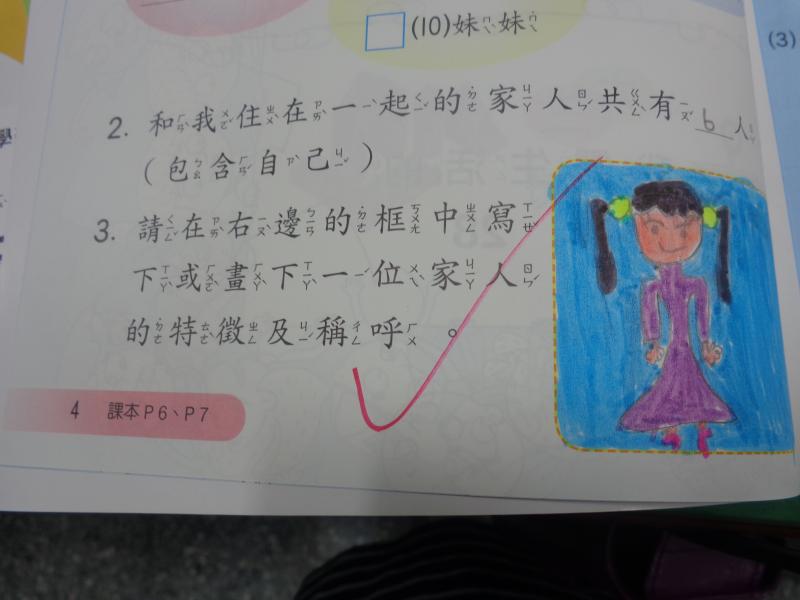 (10)妹妹
(3)
2. 和我住在一起的家人共有6人
(包含自己)
3. 請在右邊的框中寫
下或畫下一位家人
的特徵及稱呼。
4 課本P6、P7